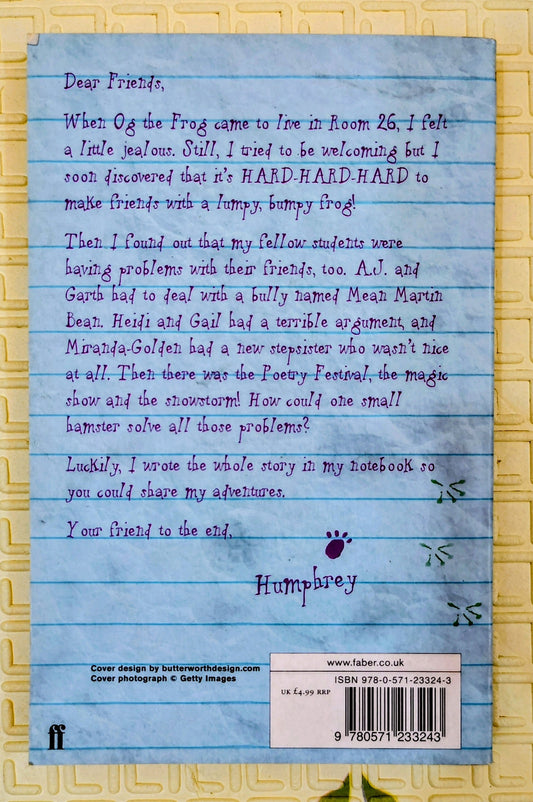 Dear Friends,
When Og the Frog came to live in Room 26, I felt
a little jealous. Still, I tried to be welcoming but I
soon discovered that it's HARD-HARD-HARD to
make friends with a lumpy, bumpy frog!
Then I found out that my fellow students were
having problems with their friends, too. A.J. and
Garth had to deal with a bully named Mean Martin
Bean. Heidi and Gail had a terrible argument, and
Miranda-Golden had a new stepsister who wasn't nice
at all. Then there was the Poetry Festival, the magic
show and the snowstorm! How could one small
hamster solve all those problems?
Luckily, I wrote the whole story in my notebook so
you could share my adventures.
Your friend to the end,
Humphrey
Cover design by butterworthdesign.com
Cover photograph © Getty Images
ff
www.faber.co.uk
ISBN 978-0-571-23324-3
UK £4.99 RRP
9 780571 233243